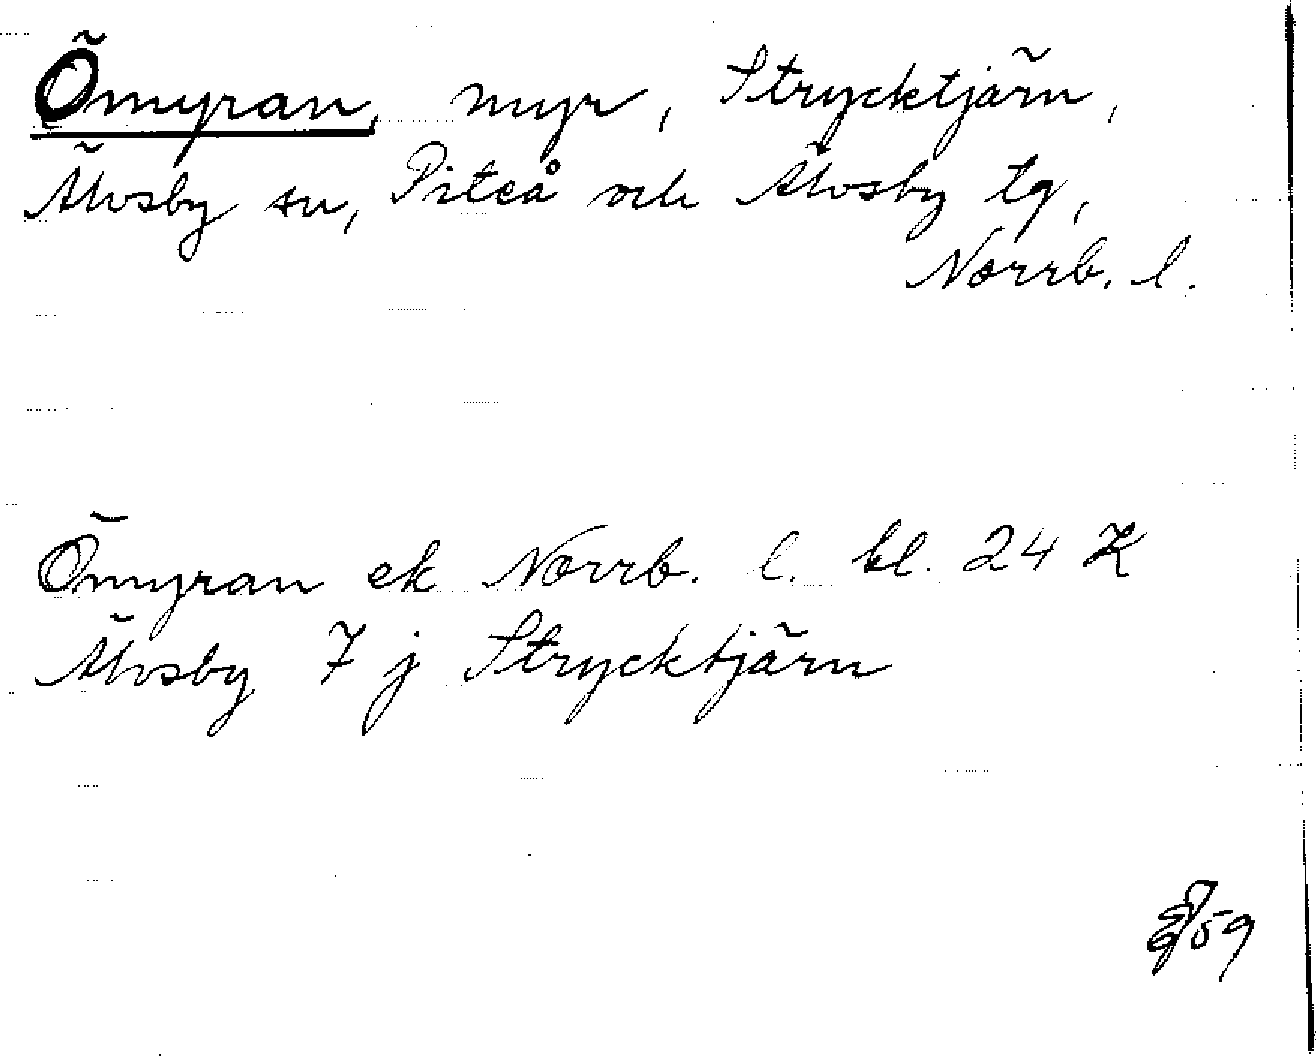 Ömyran, myr, Strycktjärn,
Älvsby sn, Piteå och Älvsby tg,
Norrb. l.
Ömyran ek Norrb. l. bl. 24 K
Älvsby 7 j Strycktjärn
59